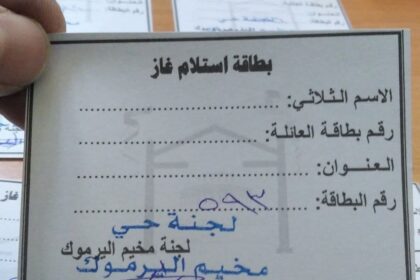 بطاقة استلام غاز
الاسم الثلاثي:
رقم بطاقة العائلة:
العنوان:
رقم البطاقة: ٥٩٣
لجنة حي
لجنة مخيم اليرموك
مخيم اليرموك